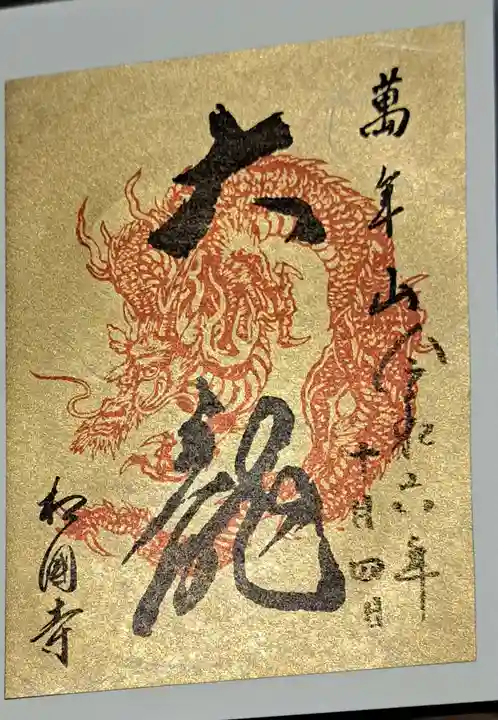 萬年山
令和六年
十月四日
大龍
相國寺